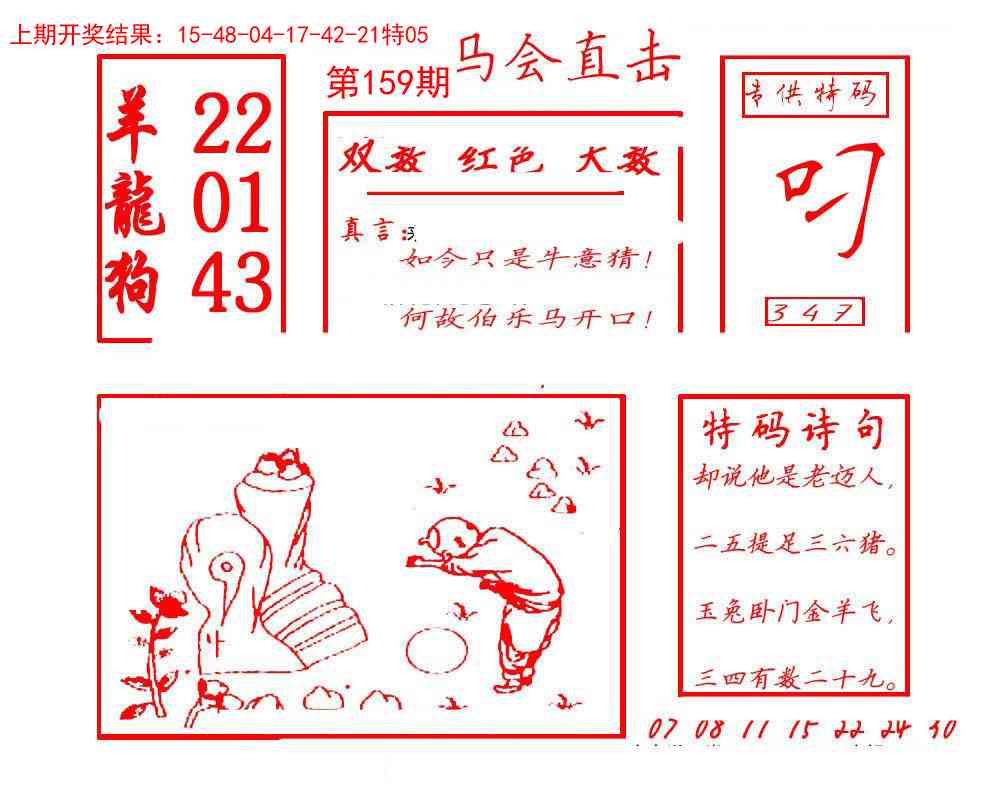 上期开奖结果：15-48-04-17-42-21特05
第159期
马会直击
羊 22
龍 01
狗 43
双数 红色 大数
真言：
如今只是牛意猜！
何故伯乐马开口！
专供特码
叼
347
特码诗句
却说他是老迈人，
二五提足三六猪。
玉兔卧门金羊飞，
三四有数二十九。
07 08 11 15 22 24 40